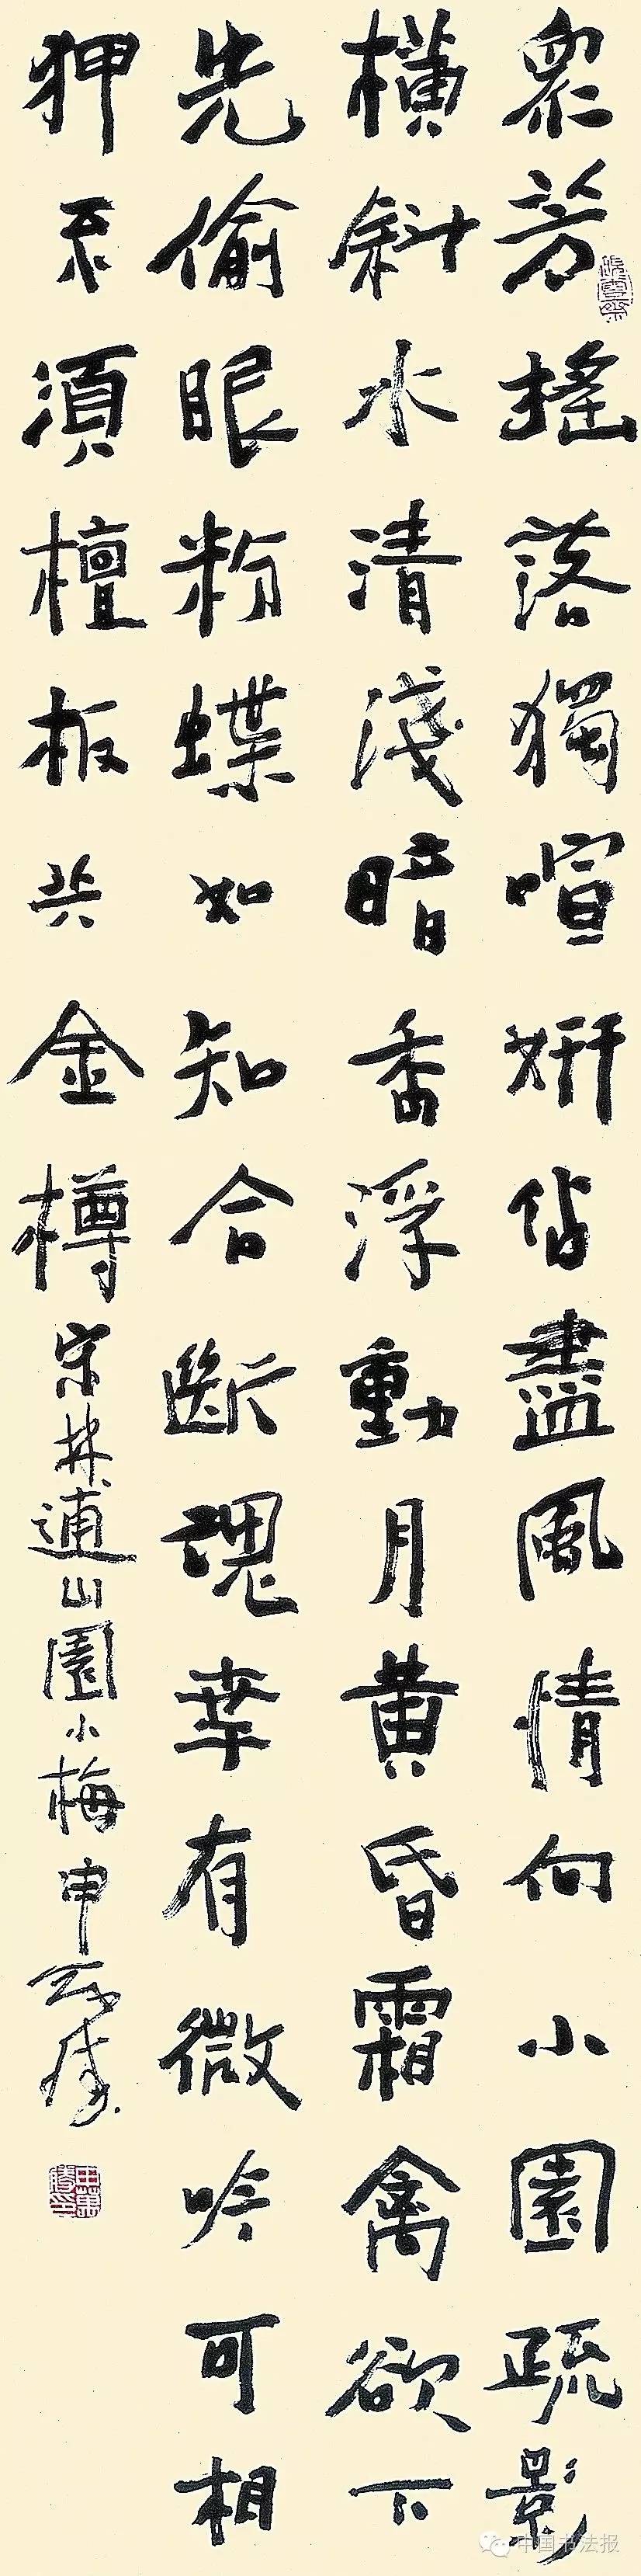 衆芳搖落獨喧妍佔盡風情向小園疏影
橫斜水清淺暗香浮動月黃昏霜禽欲下
先偷眼粉蝶如知合斷魂幸有微吟可相
狎不須檀板共金樽宋林逋山園小梅申万勝
申萬勝印
中国书法报